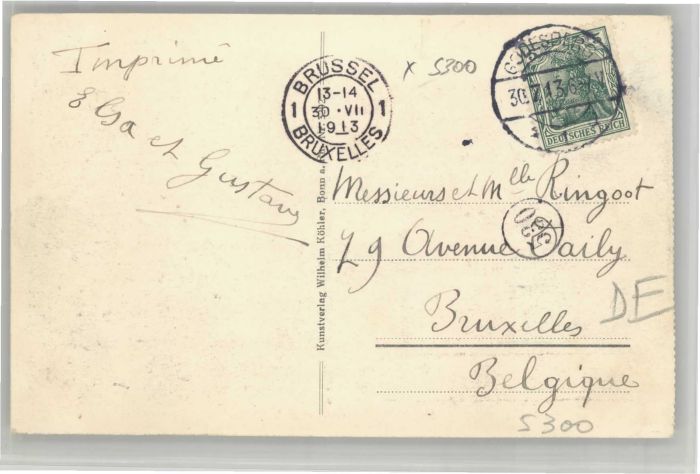 Imprimé
Elsa et Gustave
Kunstverlag Wilhelm Köhler, Bonn a.
BRÜSSEL
1 1
13-14
30 · VII
1913
BRUXELLES
x 5300
30.7.13.
DEUTSCHES REICH
Messieurs et Mlle Ringoot
79 Avenue Dailly
Bruxelles
Belgique
DE
5300